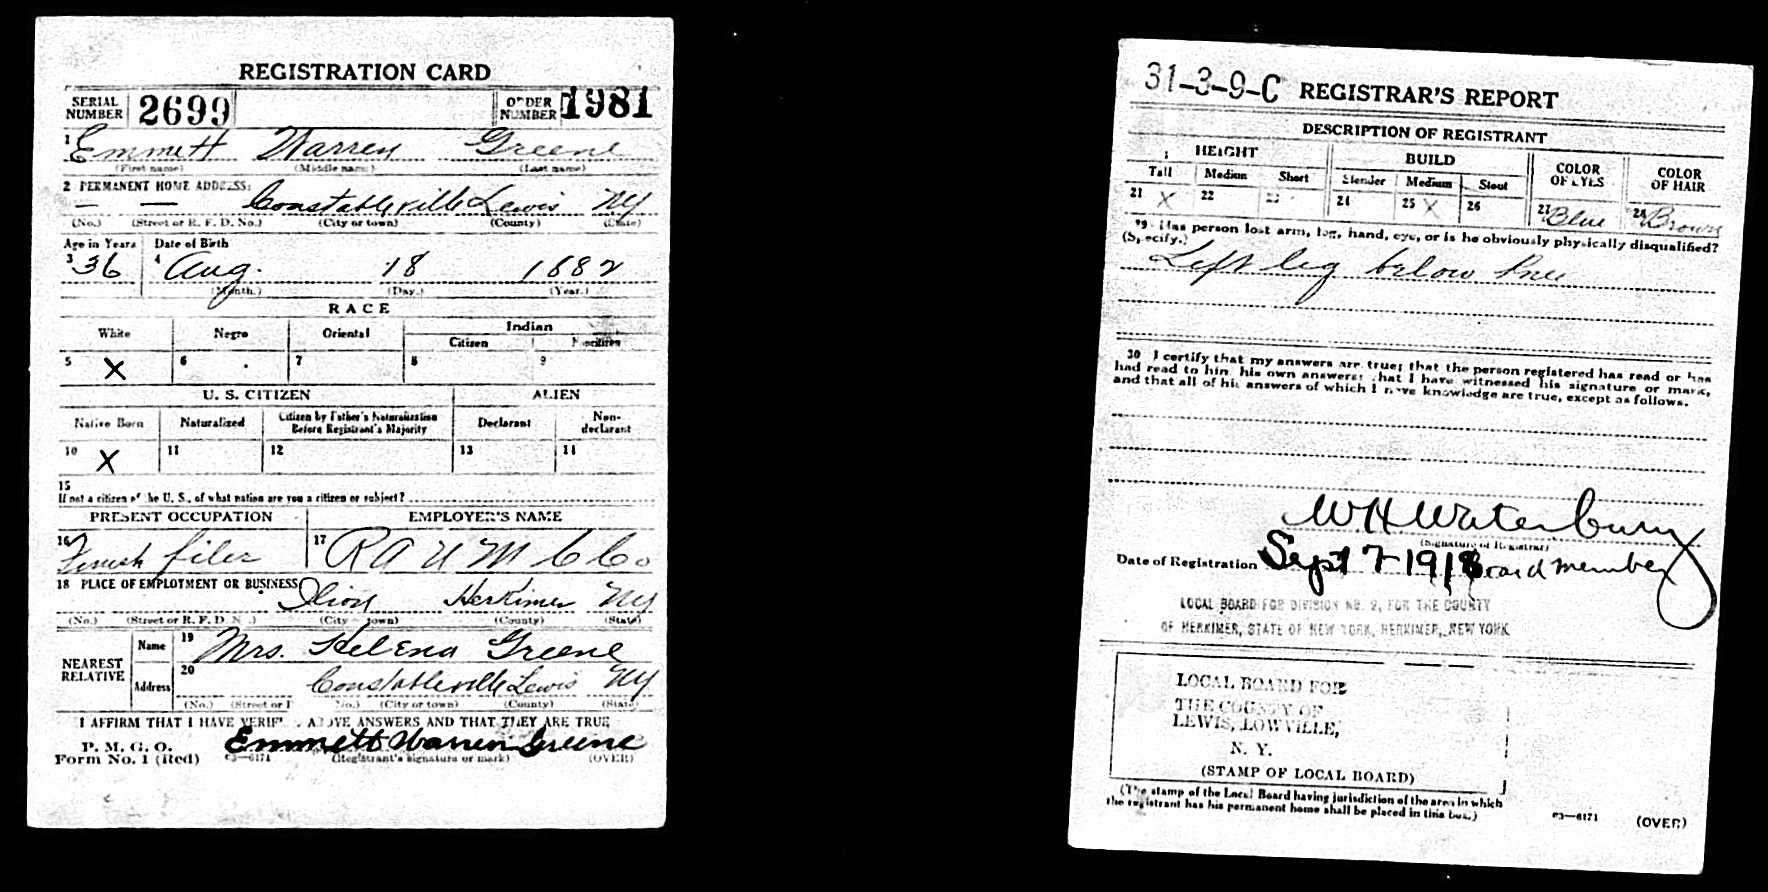 REGISTRATION CARD
SERIAL NUMBER 2699 ORDER NUMBER 1981
1 Emmett Warren Greene
(First name) (Middle name) (Last name)
2 PERMANENT HOME ADDRESS:
— — Constableville Lewis NY
(No.) (Street or R. F. D. No.) (City or town) (County) (State)
Age in Years Date of Birth
3 36 4 Aug. 18 1882
(Month.) (Day.) (Year.)
RACE
White Negro Oriental Indian
Citizen Noncitizen
5 X 6 7 8 9
U. S. CITIZEN ALIEN
Native Born Naturalized Citizen by Father's Naturalization Before Registrant's Majority Declarant Non-declarant
10 X 11 12 13 14
15
If not a citizen of the U. S., of what nation are you a citizen or subject?
PRESENT OCCUPATION EMPLOYER'S NAME
16 filer 17 R A U M C Co
18 PLACE OF EMPLOYMENT OR BUSINESS:
Ilion Herkimer NY
(No.) (Street or R. F. D. No.) (City or town) (County) (State)
NEAREST RELATIVE
Name 19 Mrs. Helena Greene
Address 20 Constableville Lewis NY
(No.) (Street or No.) (City or town) (County) (State)
I AFFIRM THAT I HAVE VERIF ABOVE ANSWERS AND THAT THEY ARE TRUE
P. M. G. O.
Form No. 1 (Red) Emmett Warren Greene
03—6171 (Registrant's signature or mark) (OVER)
31-3-9-C REGISTRAR'S REPORT
DESCRIPTION OF REGISTRANT
HEIGHT BUILD COLOR OF EYES COLOR OF HAIR
Tall Medium Short Slender Medium Stout
21 X 22 23 24 25 X 26 27 Blue 28 Brown
29 Has person lost arm, leg, hand, eye, or is he obviously physically disqualified?
(Specify.)
Left leg below Knee
30 I certify that my answers are true; that the person registered has read or has
had read to him his own answers; that I have witnessed his signature or mark,
and that all of his answers of which I have knowledge are true, except as follows.
W H Waterbury
(Signature of Registrar)
Date of Registration Sept 7-1918 Board member
LOCAL BOARD FOR DIVISION NO. 2, FOR THE COUNTY
OF HERKIMER, STATE OF NEW YORK, HERKIMER, NEW YORK
LOCAL BOARD FOR
THE COUNTY OF
LEWIS, LOWVILLE,
N. Y.
(STAMP OF LOCAL BOARD)
(The stamp of the Local Board having jurisdiction of the area in which
the registrant has his permanent home shall be placed in this box.)
03—6171 (OVER)